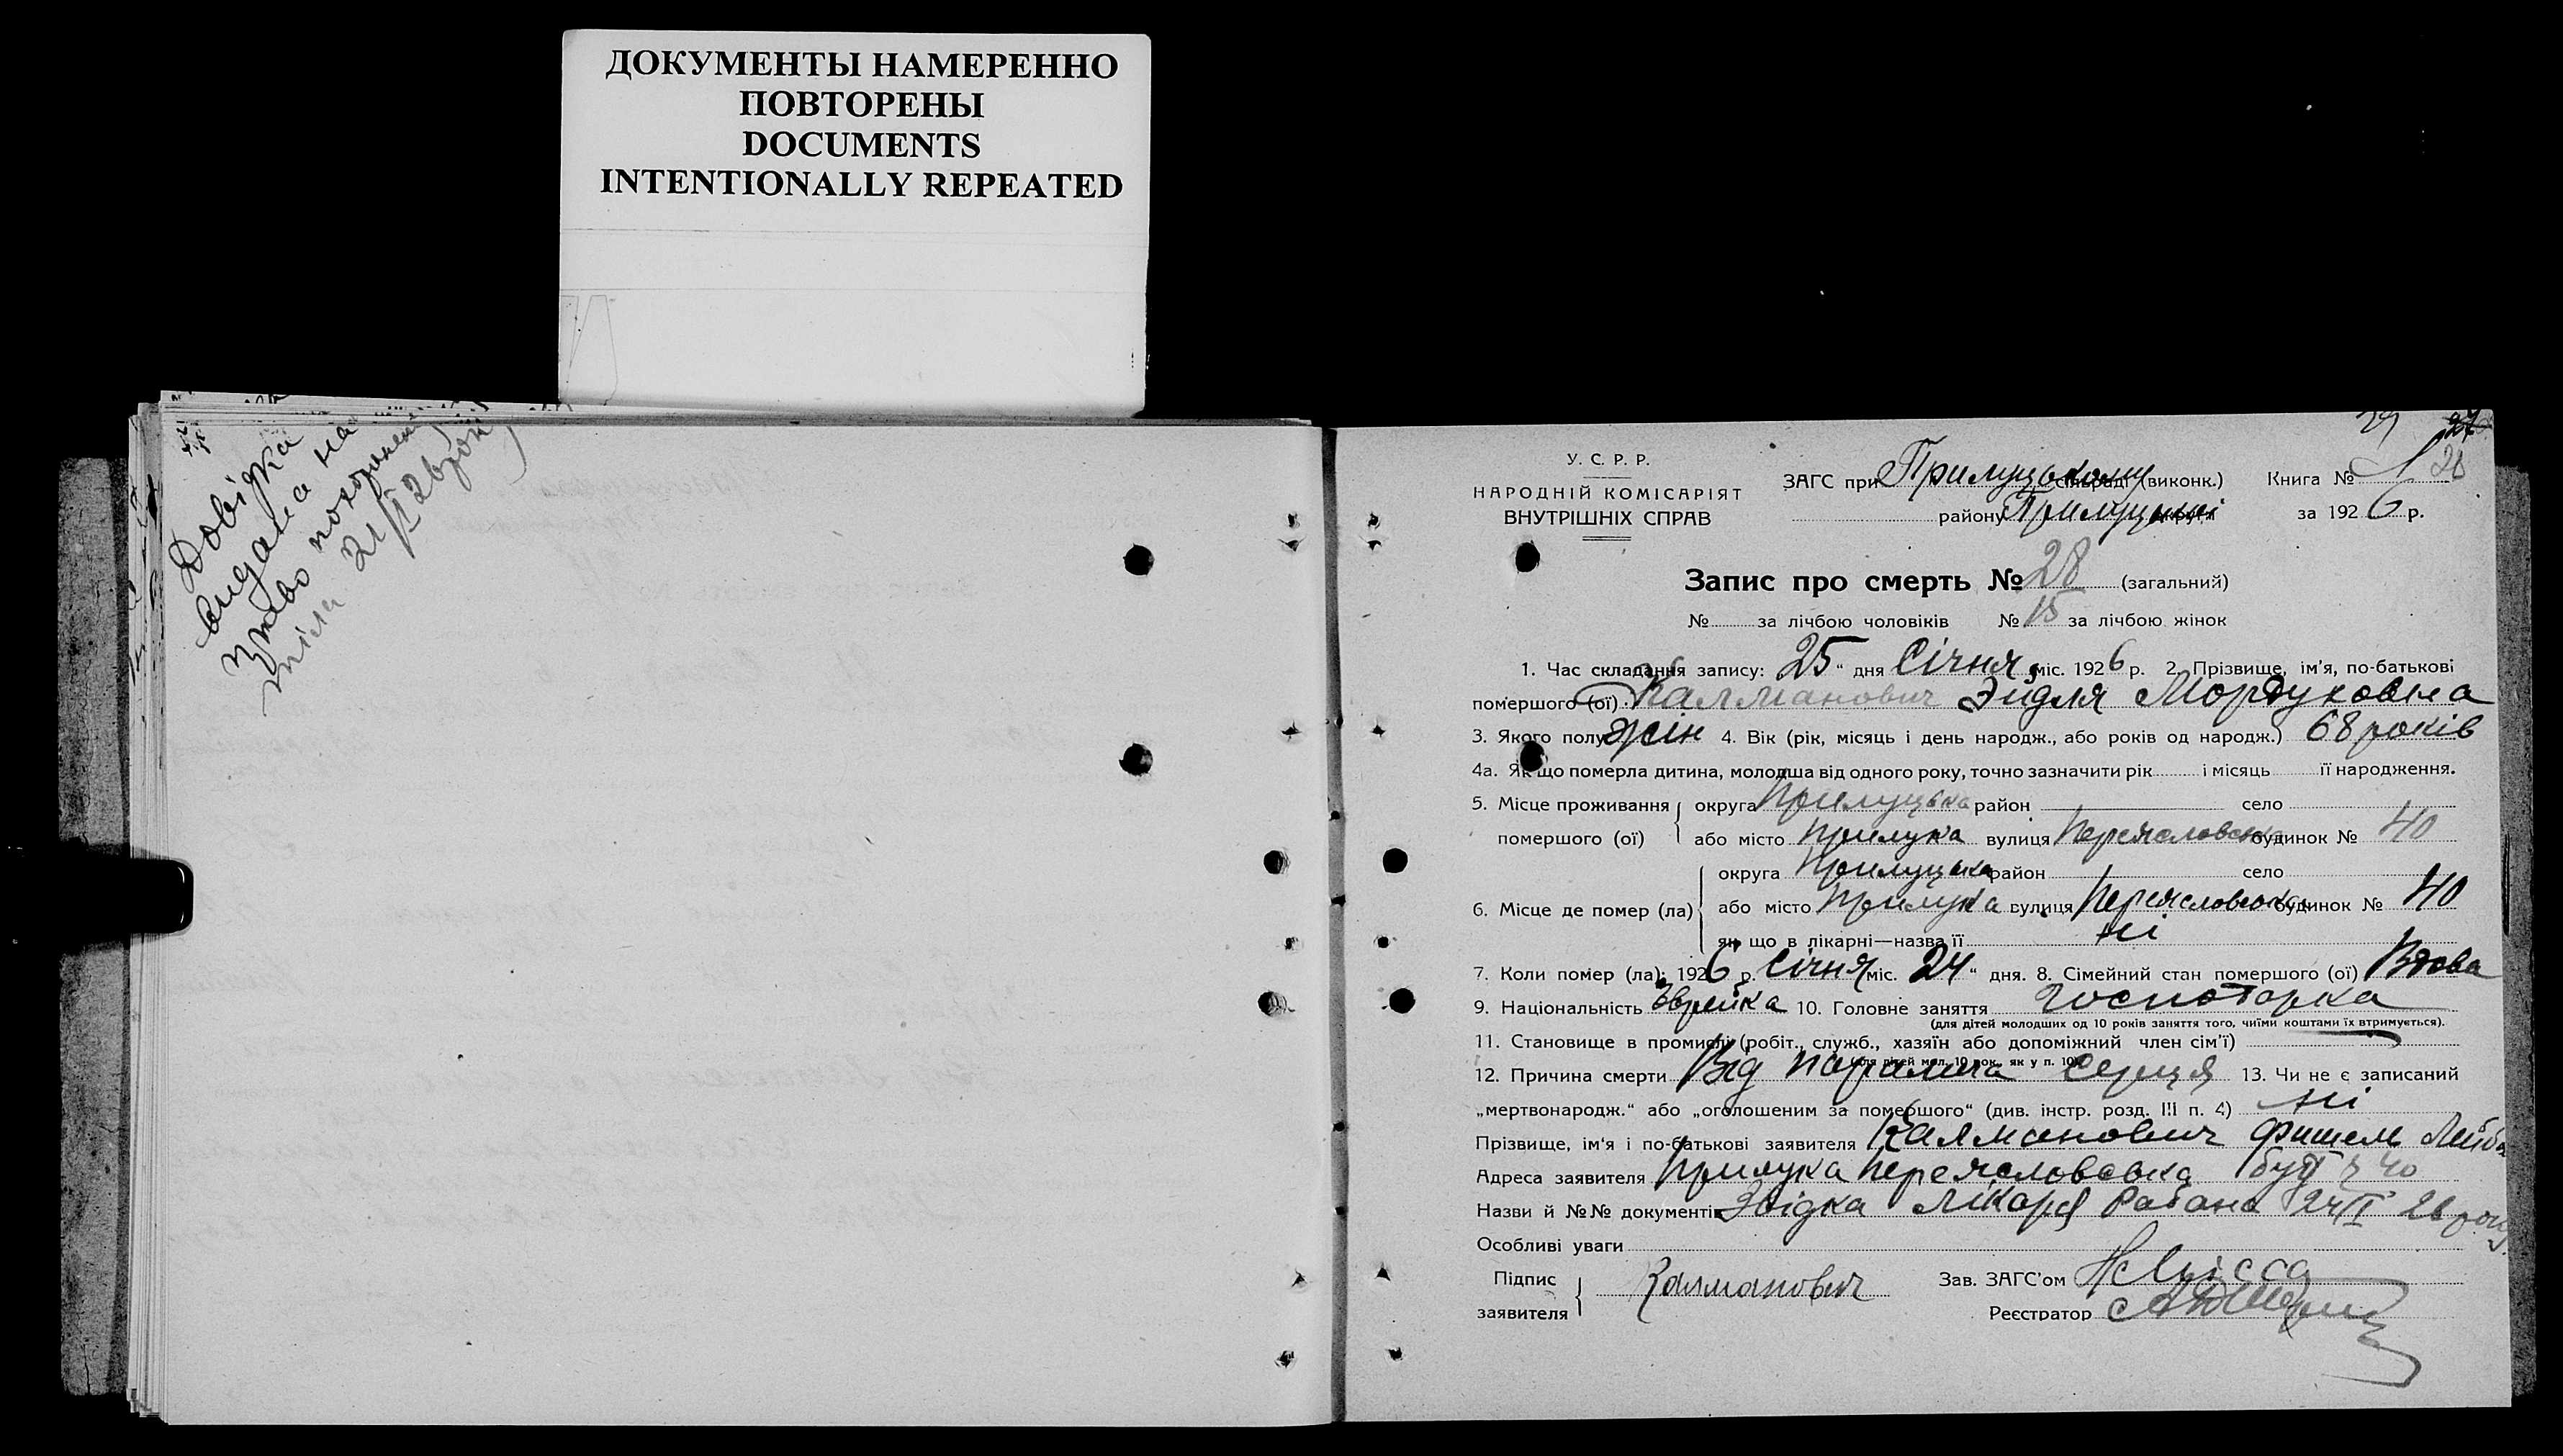 ДОКУМЕНТЫ НАМЕРЕННО
ПОВТОРЕНЫ
DOCUMENTS
INTENTIONALLY REPEATED
Довідка
видана на
право похорон
тіла 21/I 26 рок
29
28
У. С. Р. Р.
НАРОДНІЙ КОМІСАРІЯТ
ВНУТРІШНІХ СПРАВ
ЗАГС при Прилуцькому сільраді (виконк.) Книга № 1
району Прилуцької округи за 1926 р.
Запис про смерть № 28 (загальний)
№ за лічбою чоловіків № 15 за лічбою жінок
1. Час складання запису: 25 " дня Січня міс. 1926 р. 2. Прізвище, ім'я, по-батькові
помершого (ої) Калманович Эйдля Мордуховна
3. Якого полу жін 4. Вік (рік, місяць і день народж., або років од народж.) 68 років
4а. Як що померла дитина, молодша від одного року, точно зазначити рік і місяць її народження.
5. Місце проживання помершого (ої) округа Прилуцька район село
або місто Прилука вулиця Переясловська будинок № 40
6. Місце де помер (ла) округа Прилуцька район село
або місто Прилука вулиця Переясловська будинок № 40
як що в лікарні—назва її ні
7. Коли помер (ла): 1926 р. Січня міс. 24 " дня. 8. Сімейний стан помершого (ої) Вдова
9. Національність Еврейка 10. Головне заняття господарка
(для дітей молодших од 10 років заняття того, чиїми коштами їх втримується).
11. Становище в промислі (робіт., служб., хазяїн або допоміжний член сім'ї)
(для дітей мол. 10 рок. як у п. 10)
12. Причина смерти Від параліча серця 13. Чи не є записаний
„мертвонародж." або „оголошеним за помершого" (див. інстр. розд. III п. 4) ні
Прізвище, ім'я і по-батькові заявителя Калманович Фишель Лейб
Адреса заявителя Прилука Переясловська буд 40
Назви й №№ документів Звідка лікаря 24/I 26 року
Особливі уваги
Підпис заявителя Калманович Зав. ЗАГС'ом
Реєстратор